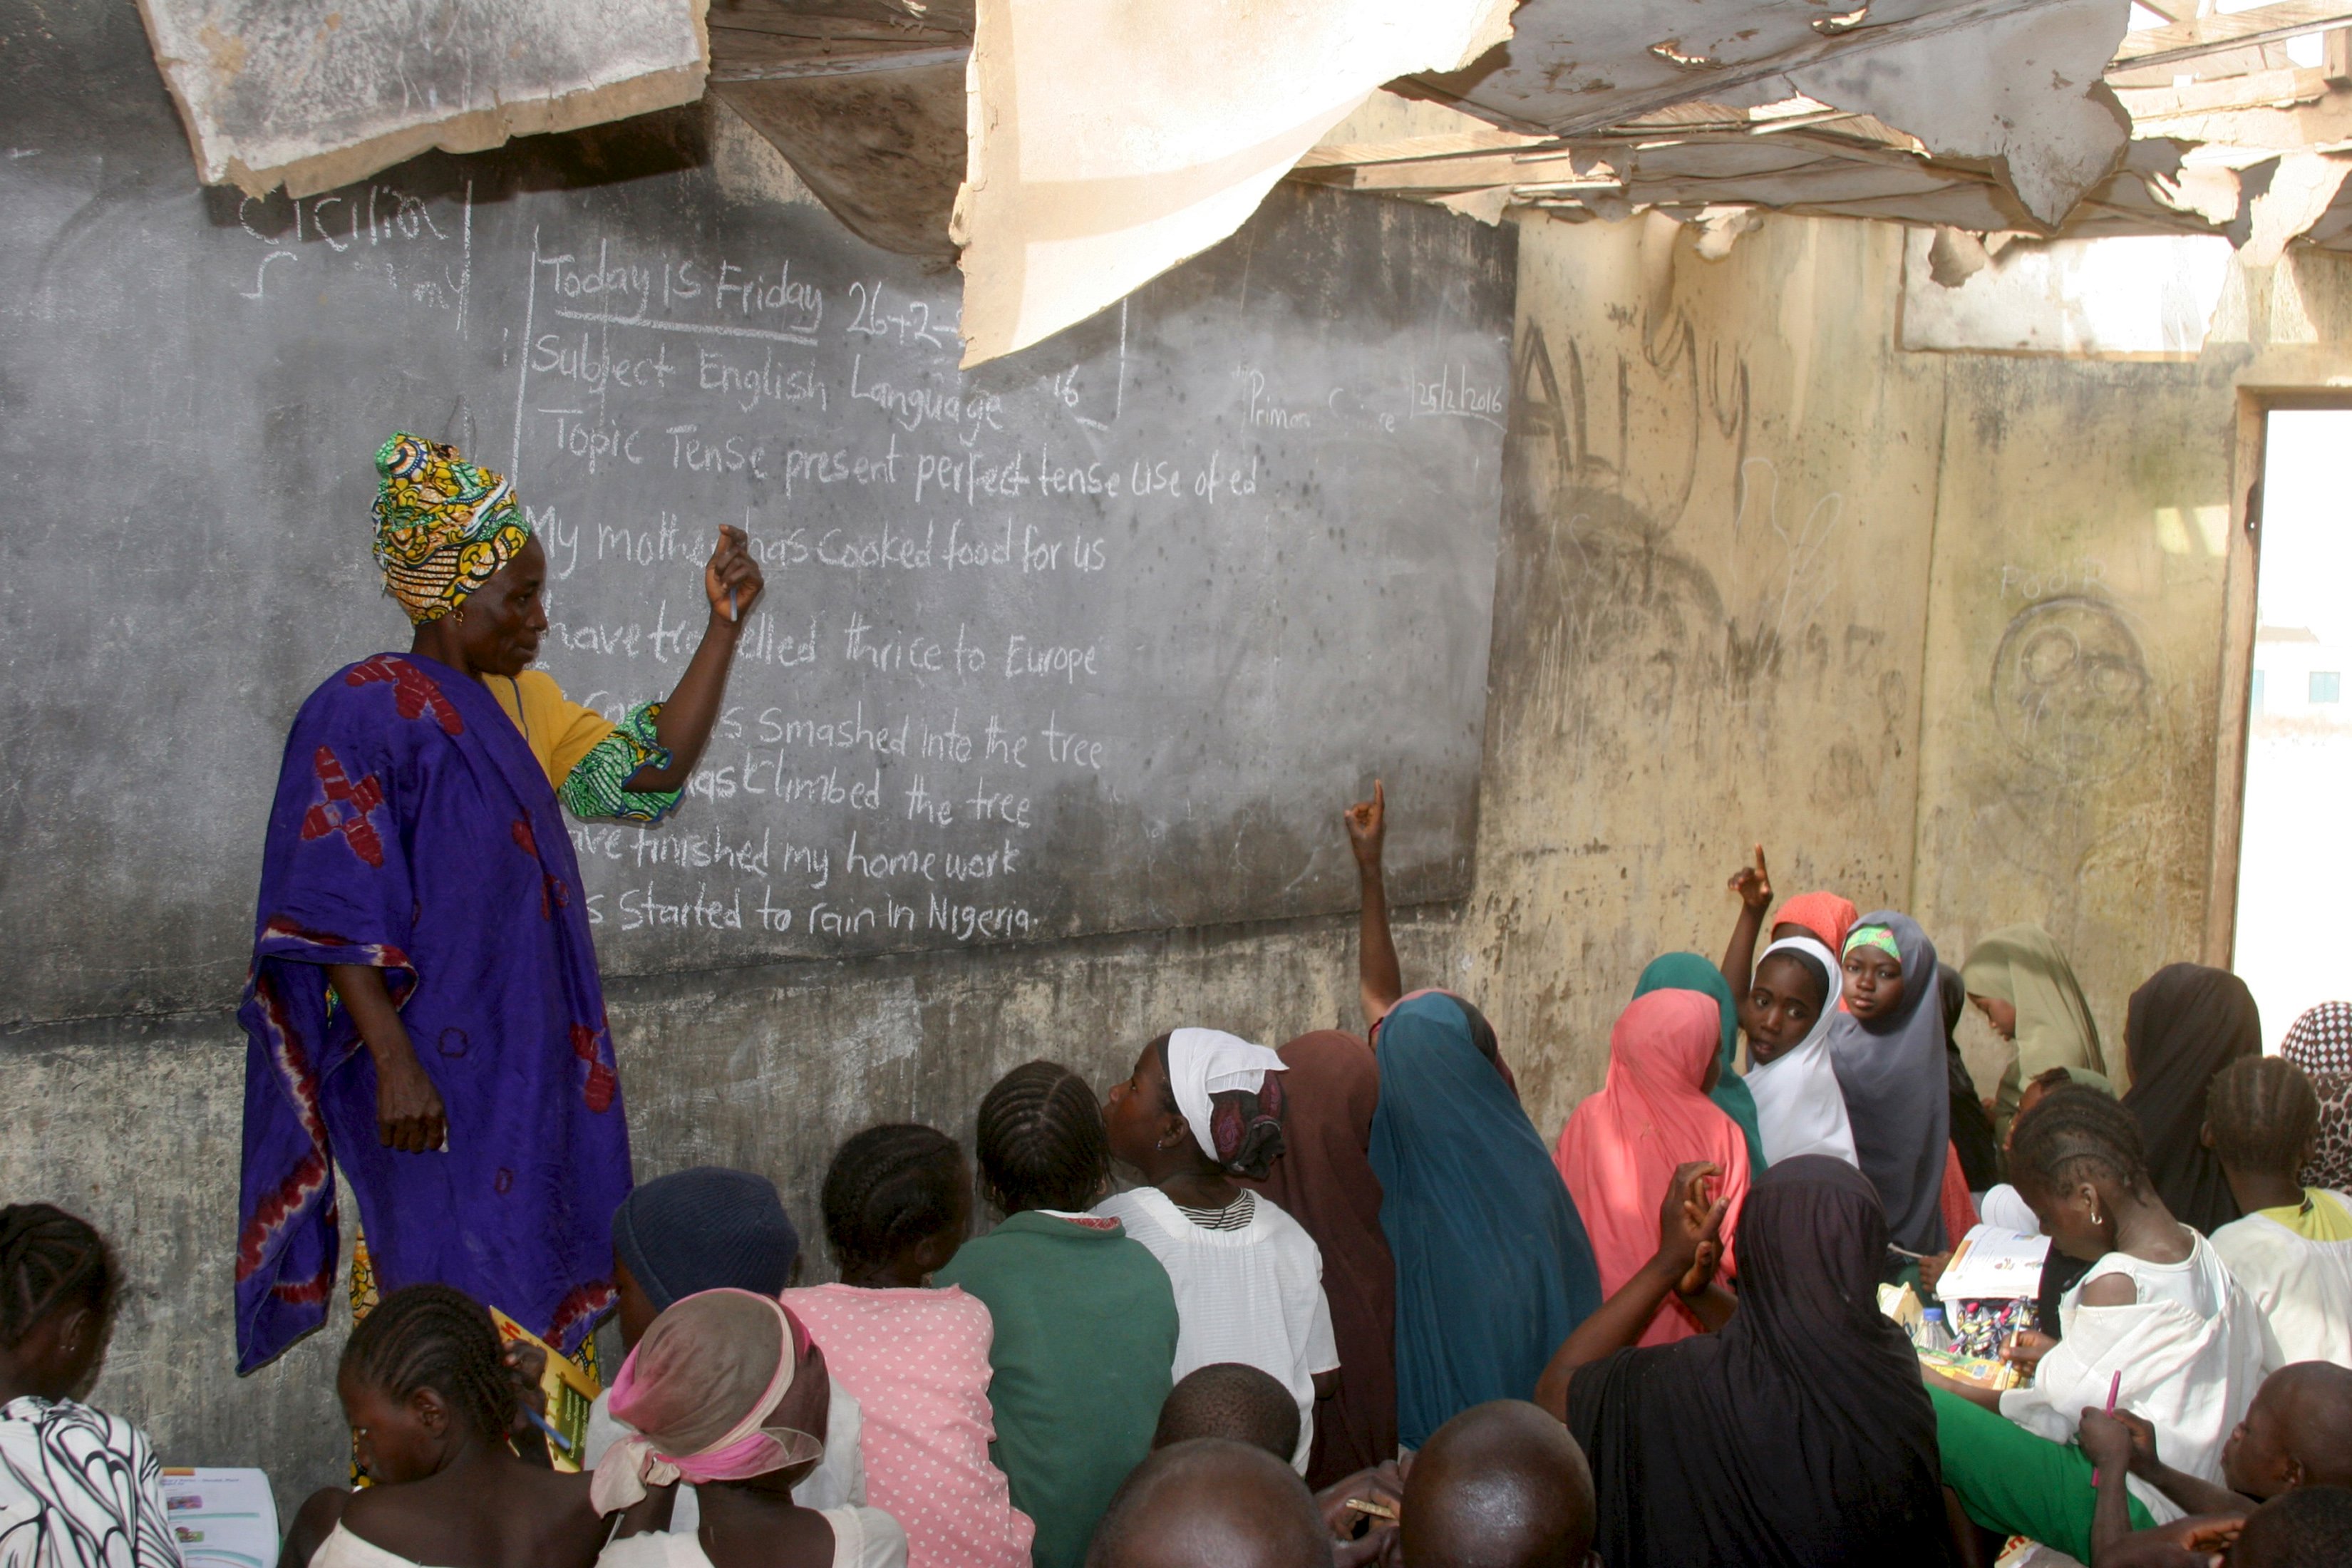 Cicilia
Today is Friday 26+2-
Subject English Language 16
Topic Tense present perfect tense use of ed
My mother has cooked food for us
have travelled thrice to Europe
s smashed into the tree
has Climbed the tree
ave finished my home work
s Started to rain in Nigeria.
25/2/2016
ALI
POOR